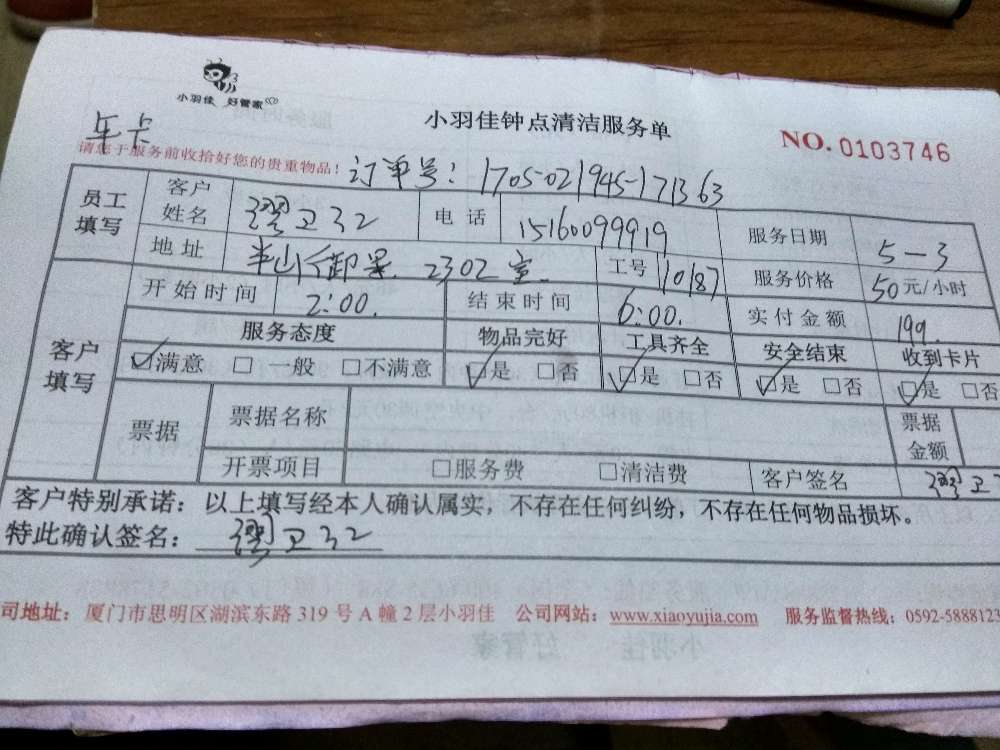 小羽佳 好管家
小羽佳钟点清洁服务单
NO. 0103746
年卡
请您于服务前收拾好您的贵重物品！
订单号：1705021945171363
员工填写 客户姓名 电话 15160099919 服务日期 5-3
地址 半山御景 2302室 工号 10187 服务价格 50元/小时
客户填写 开始时间 2:00. 结束时间 6:00. 实付金额 199.
服务态度 物品完好 工具齐全 安全结束 收到卡片
☑满意 □一般 □不满意 ☑是 □否 ☑是 □否 ☑是 □否 ☑是 □否
票据 票据名称 票据金额
开票项目 □服务费 □清洁费 客户签名
客户特别承诺：以上填写经本人确认属实，不存在任何纠纷，不存在任何物品损坏。
特此确认签名：
司地址：厦门市思明区湖滨东路 319 号 A 幢 2 层小羽佳 公司网站：www.xiaoyujia.com 服务监督热线：0592-5888123